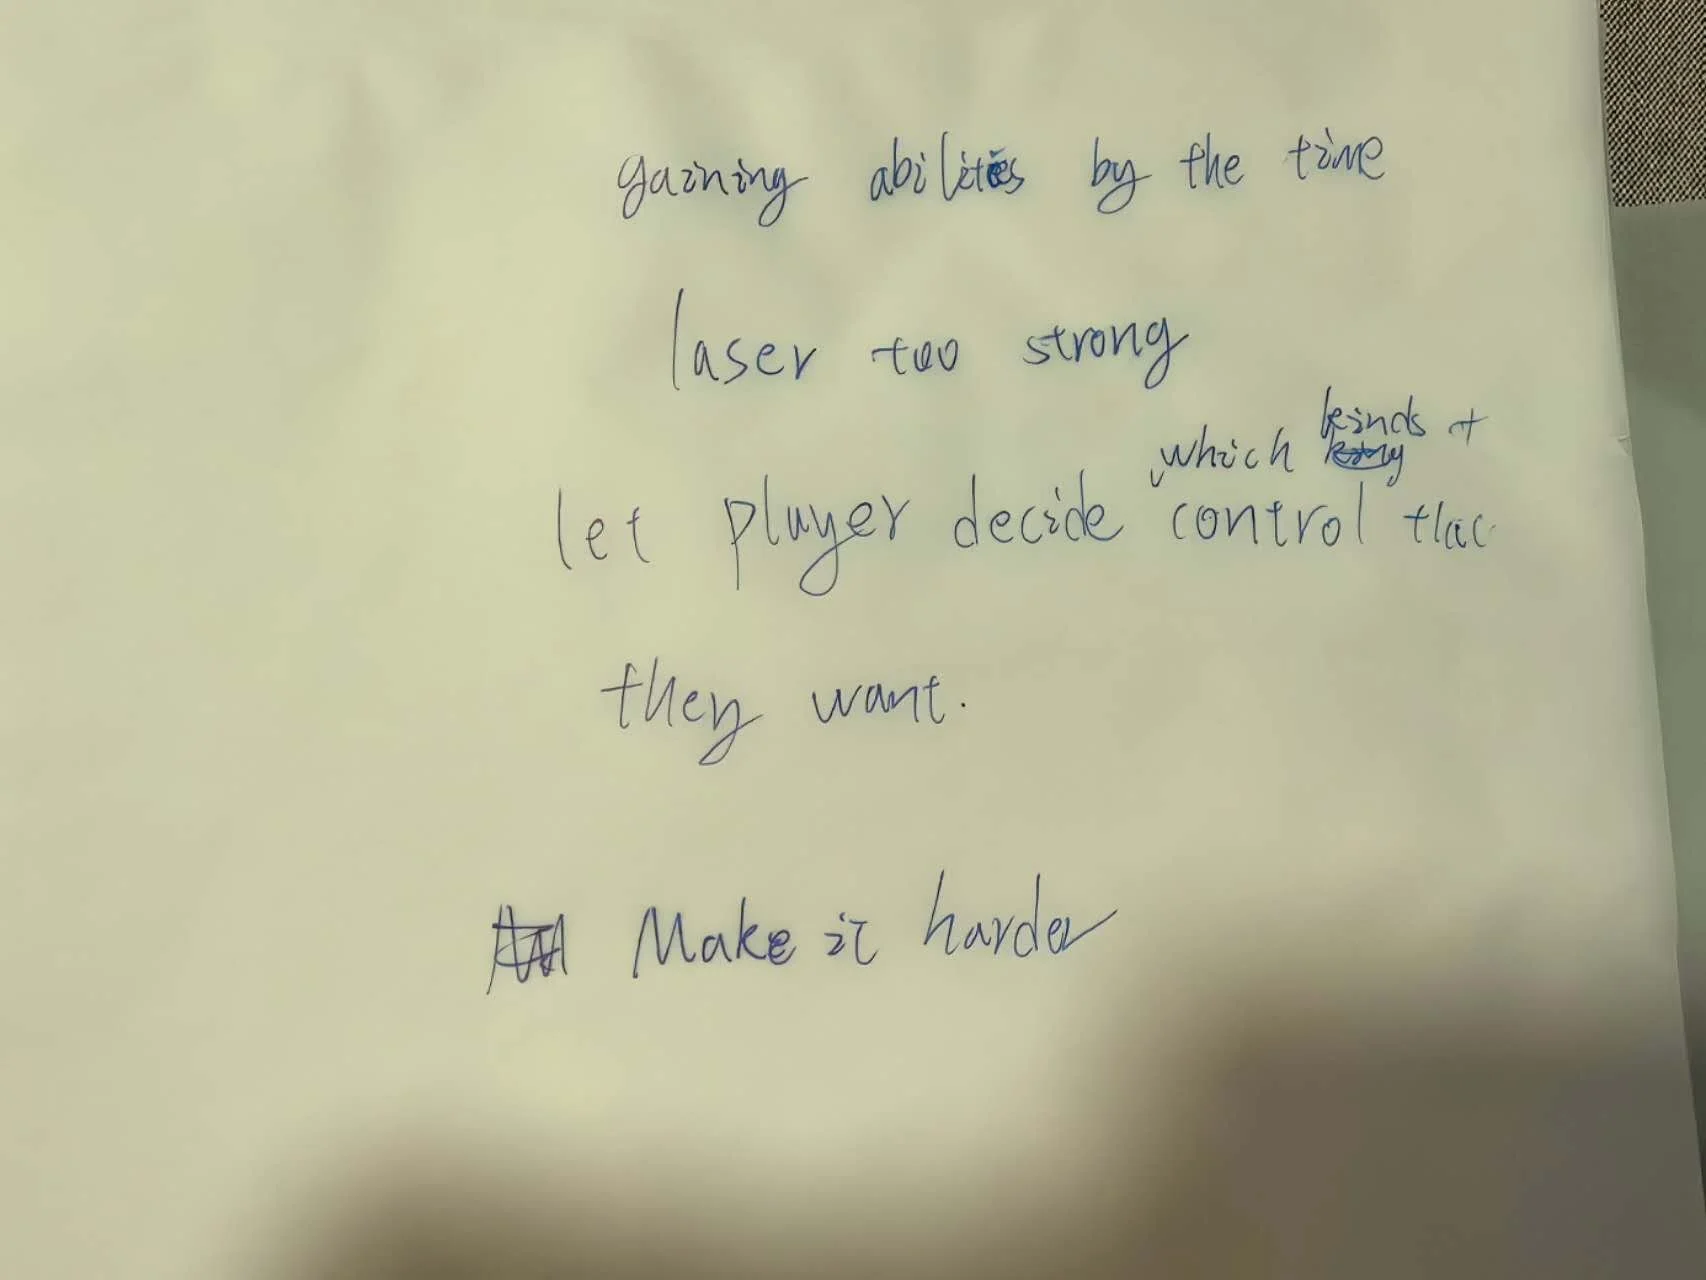 gaining abilities by the time
laser too strong
which kinds
let player decide control
they want.
Make it harder